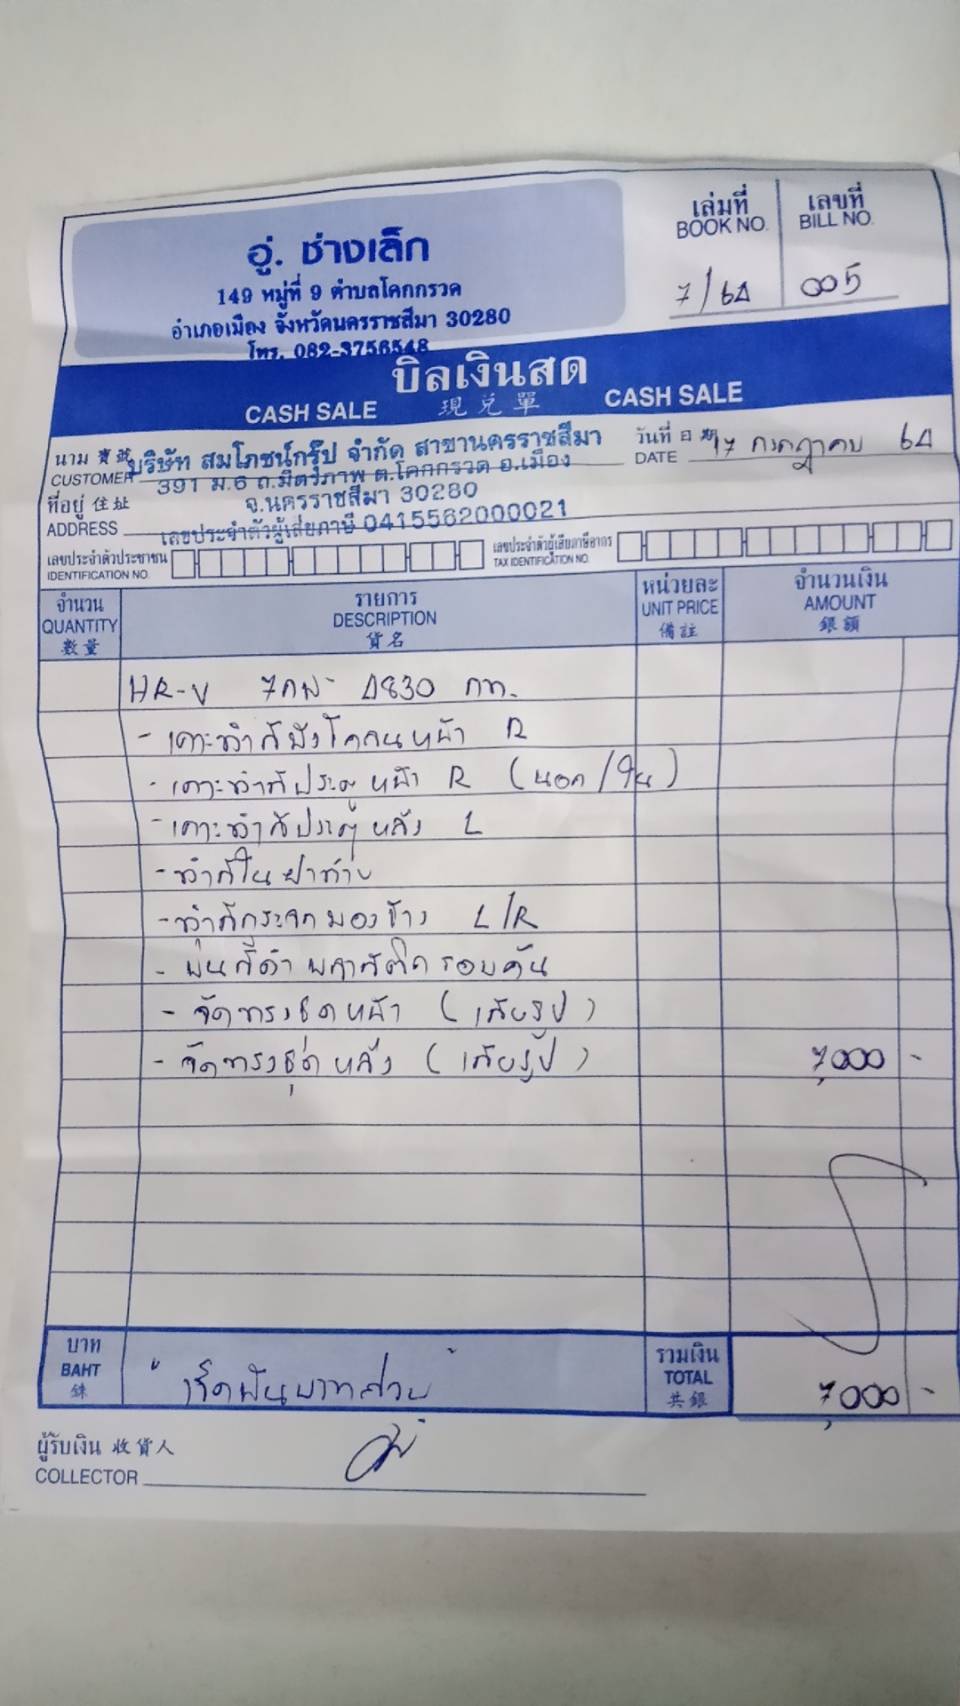 อู่. ช่างเล็ก
149 หมู่ที่ 9 ตำบลโคกกรวด
อำเภอเมือง จังหวัดนครราชสีมา 30280
โทร. 082-3756548
เล่มที่
BOOK NO.
7/64
เลขที่
BILL NO.
005
บิลเงินสด
CASH SALE 現兌單 CASH SALE
นาม 寶號
CUSTOMER
บริษัท สมโภชน์กรุ๊ป จำกัด สาขานครราชสีมา
391 ม.6 ถ.มิตรภาพ ต.โคกกรวด อ.เมือง
จ.นครราชสีมา 30280
เลขประจำตัวผู้เสียภาษี 0415562000021
วันที่ 日期
DATE
17 กรกฎาคม 64
ที่อยู่ 住址
ADDRESS
เลขประจำตัวประชาชน
IDENTIFICATION NO.
เลขประจำตัวผู้เสียภาษีอากร
TAX IDENTIFICATION NO.
จำนวน
QUANTITY
數量
รายการ
DESCRIPTION
貨名
หน่วยละ
UNIT PRICE
備註
จำนวนเงิน
AMOUNT
銀額
HR-V 7กผ 4830 กท.
- เคาะทำสีบังโคลนหน้า R
- เคาะทำสีประตูหน้า R (นอก/ใน)
- เคาะทำสีประตูหลัง L
- ทำสีในฝาท้าย
- ทำสีกระจกมองข้าง L/R
- พ่นสีดำ พลาสติกรอบคัน
- จัดทรงชุดหน้า (เสียรูป)
- จัดทรงชุดหลัง (เสียรูป) 7,000 -
บาท
BAHT
銖
" เจ็ดพันบาทถ้วน "
รวมเงิน
TOTAL
共銀
7,000 -
ผู้รับเงิน 收貨人
COLLECTOR